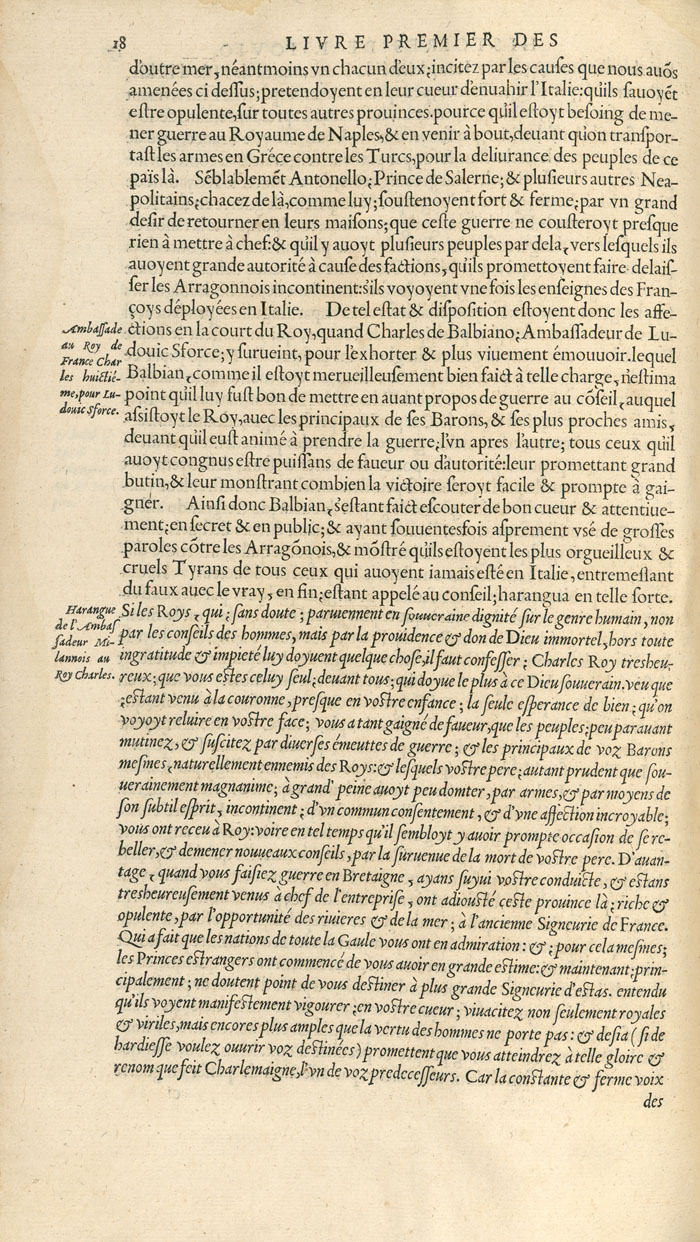 18 LIVRE PREMIER DES
d'outre mer, néantmoins vn chacun d'eux; incitez par les causes que nous auõs
amenées ci dessus; pretendoyent en leur cueur d'enuahir l'Italie: qu'ils sauoyẽt
estre opulente, sur toutes autres prouinces. pource qu'il estoyt besoing de me-
ner guerre au Royaume de Naples, & en venir à bout, deuant qu'on transpor-
tast les armes en Gréce contre les Turcs, pour la deliurance des peuples de ce
païs là. Sẽblablemẽt Antonello; Prince de Salerne; & plusieurs autres Nea-
politains; chacez de là, comme luy; soustenoyent fort & ferme; par vn grand
desir de retourner en leurs maisons; que ceste guerre ne cousteroyt presque
rien à mettre à chef: & qu'il y auoyt plusieurs peuples par dela, vers lesquels ils
auoyent grande autorité à cause des factions, qu'ils promettoyent faire delais-
ser les Arragonnois incontinent: s'ils voyoyent vne fois les enseignes des Fran-
çoys déployées en Italie. De tel estat & disposition estoyent donc les affe-
Ambassade
au Roy de
France Char
les huictié-
me, pour Lu-
douic Sforce.
ctions en la court du Roy, quand Charles de Balbiano; Ambassadeur de Lu-
douic Sforce; y surueint, pour l'exhorter & plus viuement émouuoir. lequel
Balbian, comme il estoyt merueilleusement bien faict à telle charge, n'estima
point qu'il luy fust bon de mettre en auant propos de guerre au cõseil, auquel
assistoyt le Roy, auec les principaux de ses Barons, & ses plus proches amis,
deuant qu'il eust animé à prendre la guerre; l'vn apres l'autre; tous ceux qu'il
auoyt congnus estre puissans de faueur ou d'autorité: leur promettant grand
butin, & leur monstrant combien la victoire seroyt facile & prompte à gai-
gner. Ainsi donc Balbian, s'estant faict escouter de bon cueur & attentiue-
ment; en secret & en public; & ayant souuentesfois asprement vsé de grosses
paroles cõtre les Arragõnois, & mõstré qu'ils estoyent les plus orgueilleux &
cruels Tyrans de tous ceux qui auoyent iamais esté en Italie, entremeslant
du faux auec le vray, en fin; estant appelé au conseil; harangua en telle sorte.
Harangue
de l'Ambas
sadeur Mi-
lannois au
Roy Charles.
Si les Roys, qui; sans doute; paruiennent en souueraine dignité sur le genre humain, non
par les conseils des hommes, mais par la prouidence & don de Dieu immortel, hors toute
ingratitude & impieté luy doyuent quelque chose, il faut confesser; Charles Roy tresheu-
reux; que vous estes celuy seul; deuant tous; qui doyue le plus à ce Dieu souuerain. veu que
; estant venu à la couronne, presque en vostre enfance; la seule esperance de bien; qu'on
voyoyt reluire en vostre face; vous a tant gaigné de faueur, que les peuples; peu parauant
mutinez, & suscitez par diuerses émeuttes de guerre; & les principaux de voz Barons
mesmes, naturellement ennemis des Roys: & lesquels vostre pere; autant prudent que sou-
uerainement magnanime; à grand' peine auoyt peu domter, par armes, & par moyens de
son subtil esprit, incontinent; d'vn commun consentement, & d'vne affection incroyable;
vous ont receu à Roy: voire en tel temps qu'il sembloyt y auoir prompte occasion de se re-
beller, & demener nouueaux conseils, par la suruenue de la mort de vostre pere. D'auan-
tage, quand vous faisiez guerre en Bretaigne, ayans suyui vostre conduicte, & estans
tresheureusement venus à chef de l'entreprise, ont adiousté ceste prouince là; riche &
opulente, par l'opportunité des riuieres & de la mer; à l'ancienne Signeurie de France.
Qui a fait que les nations de toute la Gaule vous ont en admiration: &; pour cela mesmes;
les Princes estrangers ont commencé de vous auoir en grande estime: & maintenant; prin-
cipalement; ne doutent point de vous destiner à plus grande Signeurie d'estas. entendu
qu'ils voyent manifestement vigourer; en vostre cueur; viuacitez non seulement royales
& viriles, mais encores plus amples que la vertu des hommes ne porte pas: & desia (si de
hardiesse voulez ouurir voz destinées) promettent que vous atteindrez à telle gloire &
renom que feit Charlemaigne, l'vn de voz predecesseurs. Car la constante & ferme voix
des